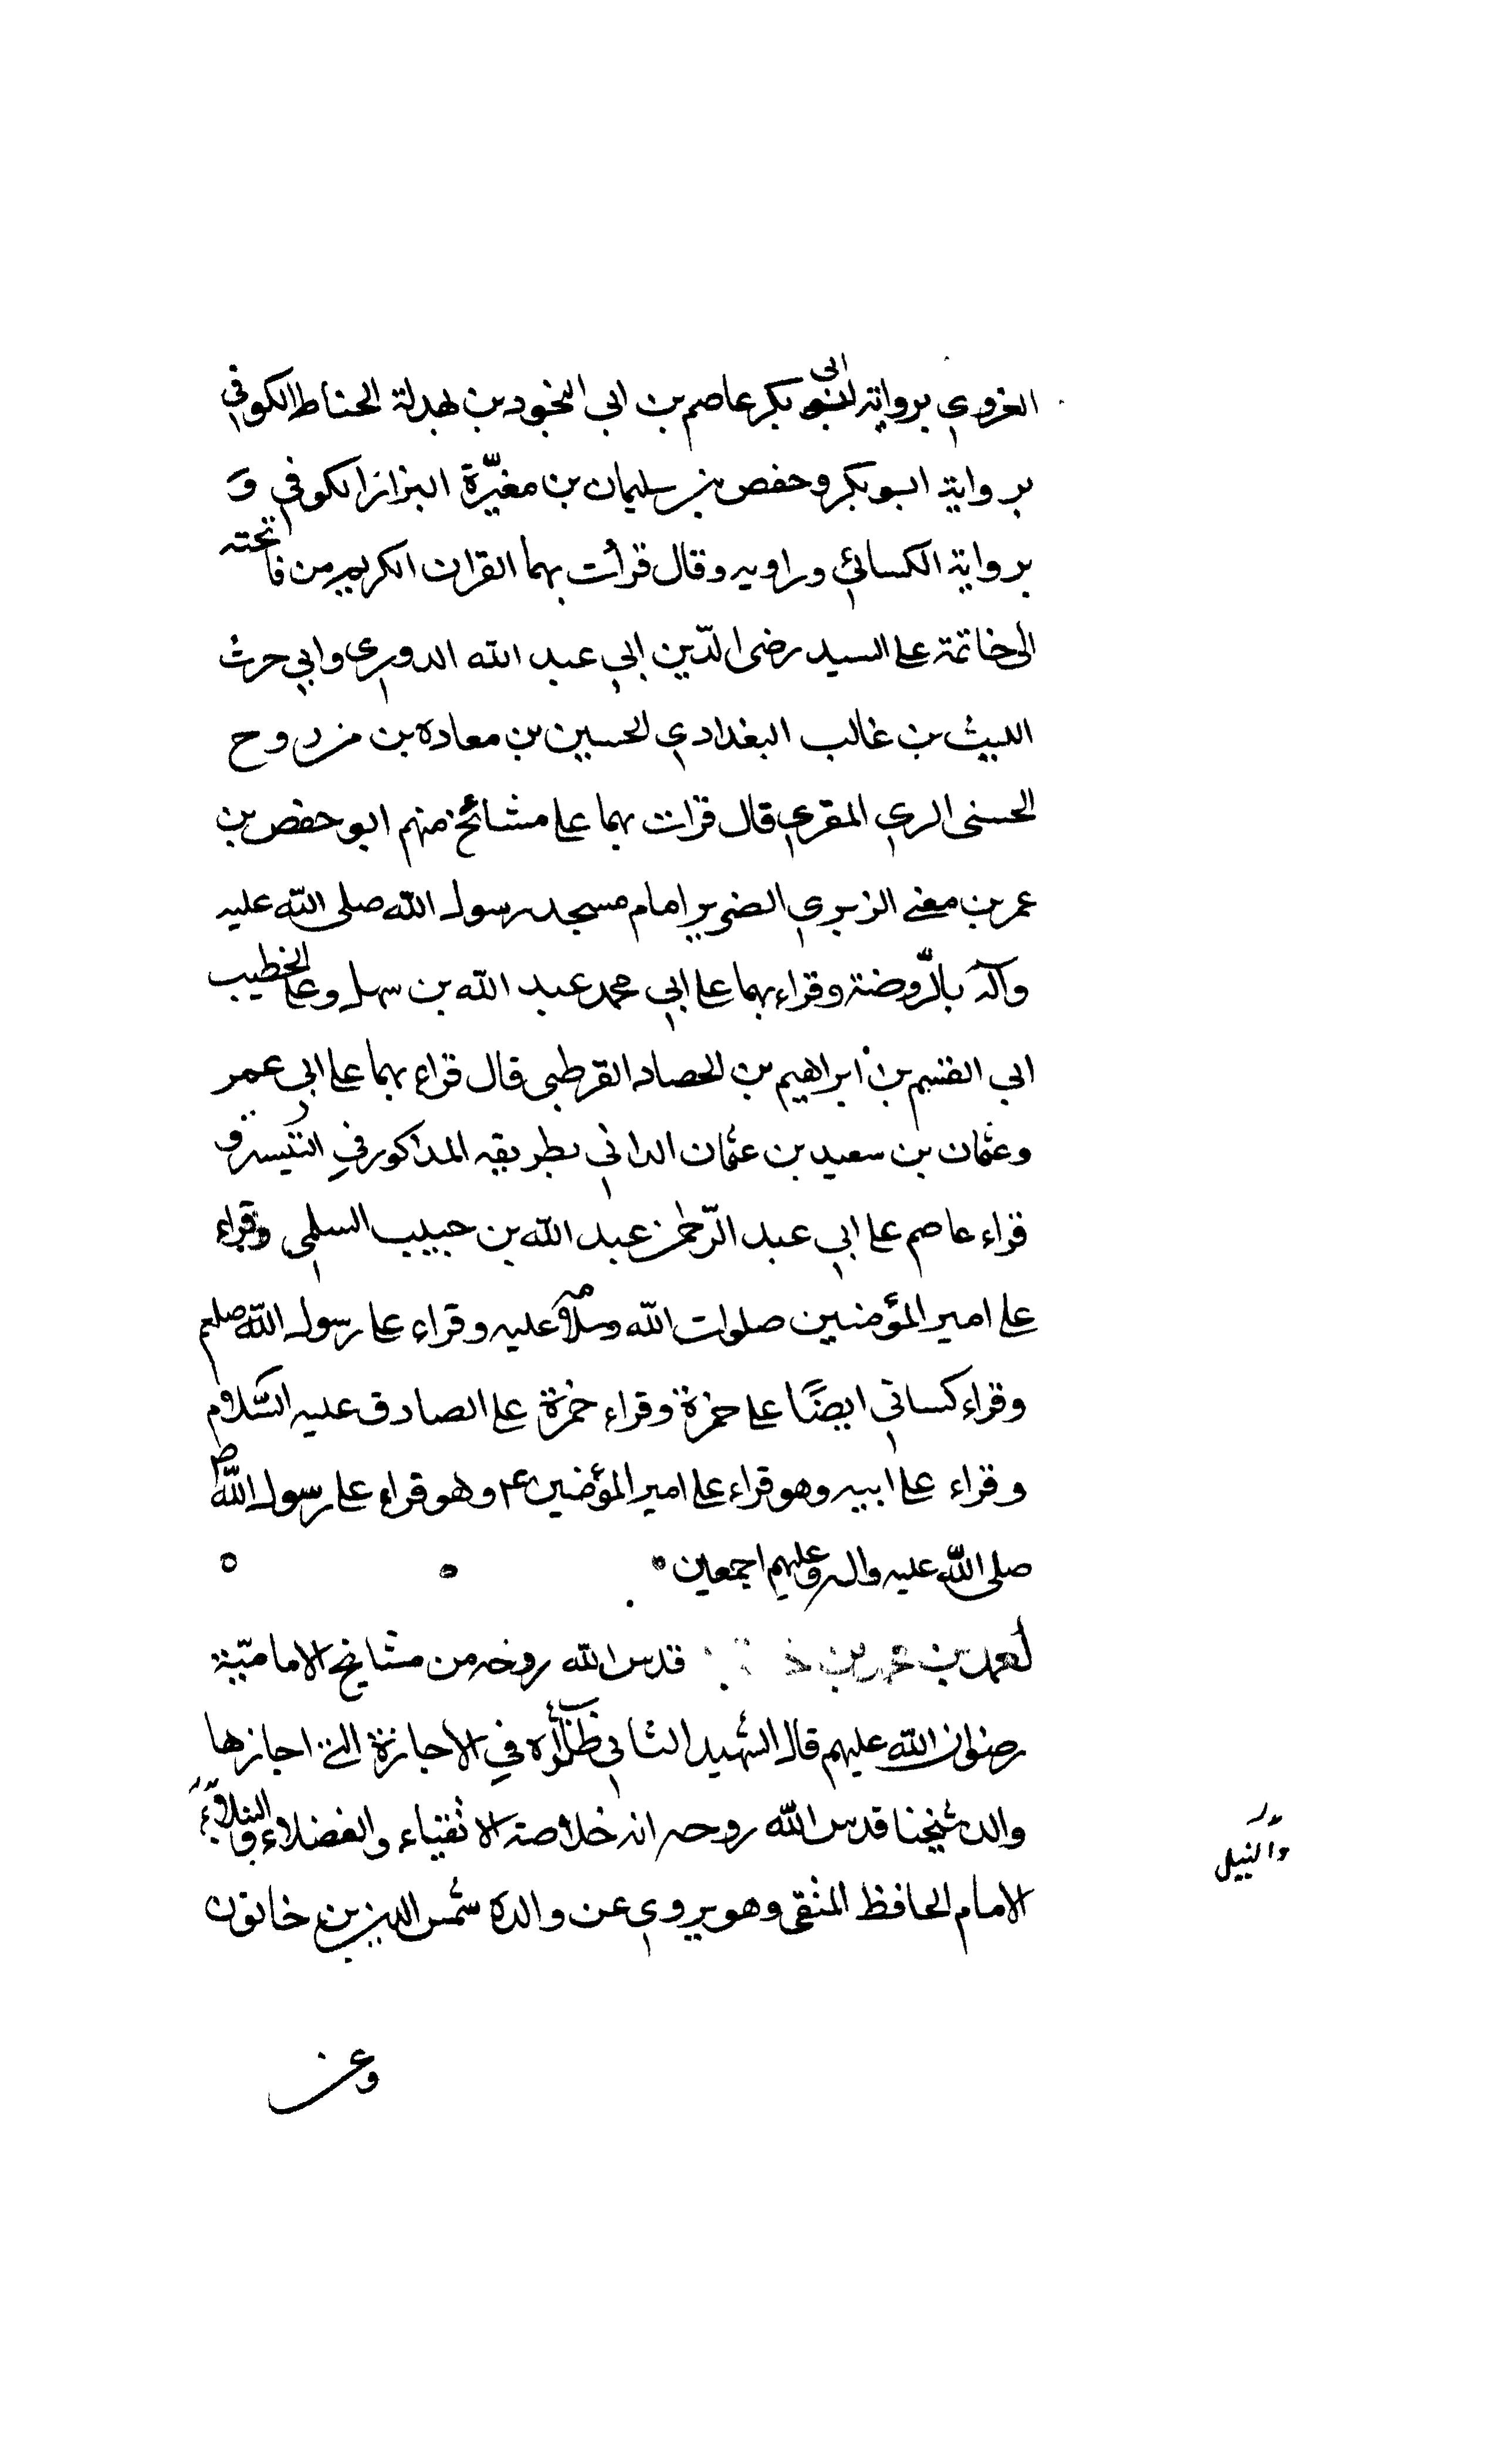 الغروي برواية ابى بكر عاصم بن ابي النجود بن بهدلة الحناط الكوفي
برواية ابو بكر وحفص بن سليمان بن مغيّرة البزاز الكوفي وَ
برواية الكسائي وراويه وقال قرأت بهما القران الكريم من فاتحته
الى خاتمة على السيد رضى الدّين ابي عبد الله الدوري وابي حرث
الليث بن غالب البغدادي الحسين بن معاده بن مزروح
الحسنى الري المقري قال قرات بهما على مشائخ منهم ابو حفص بن
عمر بن معنى الزبري الضرير امام مسجد رسول الله صلى الله عليه
وآله بالرّوضة وقراء بهما على ابي محمد عبد الله بن سهل وعلى الخطيب
ابي القسم بن ابراهيم بن الحصاد القرطبى قال قراء بهما على ابي عمر
وعثمان بن سعيد بن عثمان الداني بطريقه المذكور في التيسر و
قراء عاصم على ابي عبد الرّحمن عبد الله بن حبيب السلمي وقراء
على امير المؤمنين صلوات الله وسلامه عليه وقراء على رسول الله صلعم
وقراء كسائي ايضًا على حمزة وقراء حمزة على الصادق عليه السّلام
وقراء على ابيه وهو قراء على امير المؤمنين ع وهو قراء على رسول الله ص
صلى الله عليه واله وعليهم اجمعين
احمد بن محمد بن قدس الله روحه من مشايخ الاماميّة
رضوان الله عليهم قال الشهيد الثاني طاب ثراه في الاجازة التى اجازها
والد شيخنا قدس الله روحه انه خلاصة الاتقياء والفضلاء والنبلاء
الامام الحافظ المتقى وهو يروي عن والده شمس الدين بن خاتون
والنبيل
وعن